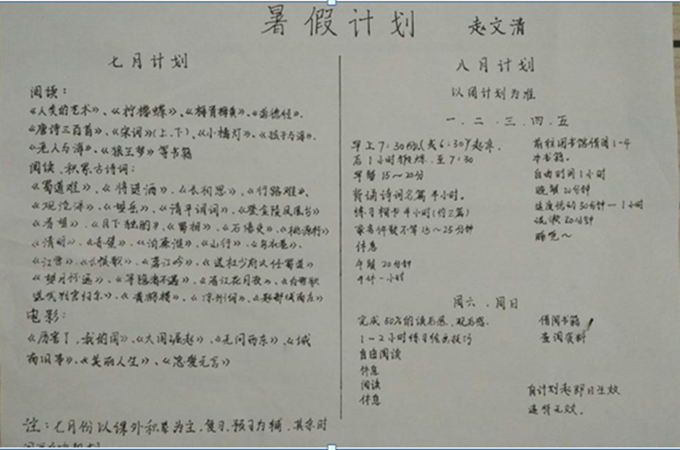 暑假计划 赵文清
七月计划
阅读:
《人类的艺术》、《柠檬蝶》、《梅青梅黄》、《道德经》、
《唐诗三百首》、《宋词》(上、下)、《小橘灯》、《孩子与海》、
《老人与海》、《狼王梦》等书籍
阅读、积累古诗词:
《蜀道难》、《将进酒》、《长相思》、《行路难》、
《观沧海》、《望岳》、《清平调词》、《登金陵凤凰台》
《春望》、《月下独酌》、《蜀相》、《石壕吏》、《桃源行》
《清明》、《春望》、《泊秦淮》、《山行》、《乌衣巷》、
《江雪》、《长恨歌》、《暮江吟》、《送杜少府之任蜀州》
《望月怀远》、《寻隐者不遇》、《春江花月夜》、《白雪歌
送武判官归京》、《黄鹤楼》、《凉州词》、《题都城南庄》
电影:
《厉害了,我的国》、《大国崛起》、《无问西东》、《城
南旧事》、《美丽人生》、《怎爱无言》
注:七月份以课外积累为主,复习、预习为辅,其余时
八月计划
以周计划为准
一、二、三、四、五
早上7:30(或6:30)起床,
后1小时锻炼,至7:30
早餐15~20分
背诵诗词名篇半小时。
练习楷书半小时(约三篇)
休息
午餐20分钟
午休一小时
前往图书馆借阅1-4
本书籍。
自由时间1小时
晚餐20分钟
30分钟—1小时
洗漱20分钟
睡觉~
周六、周日
完成80%的读后感、观后感。
1~2小时练习绘画技巧
自由阅读
休息
阅读
休息
借阅书籍
查阅资料
自计划起即日生效
逾期无效。